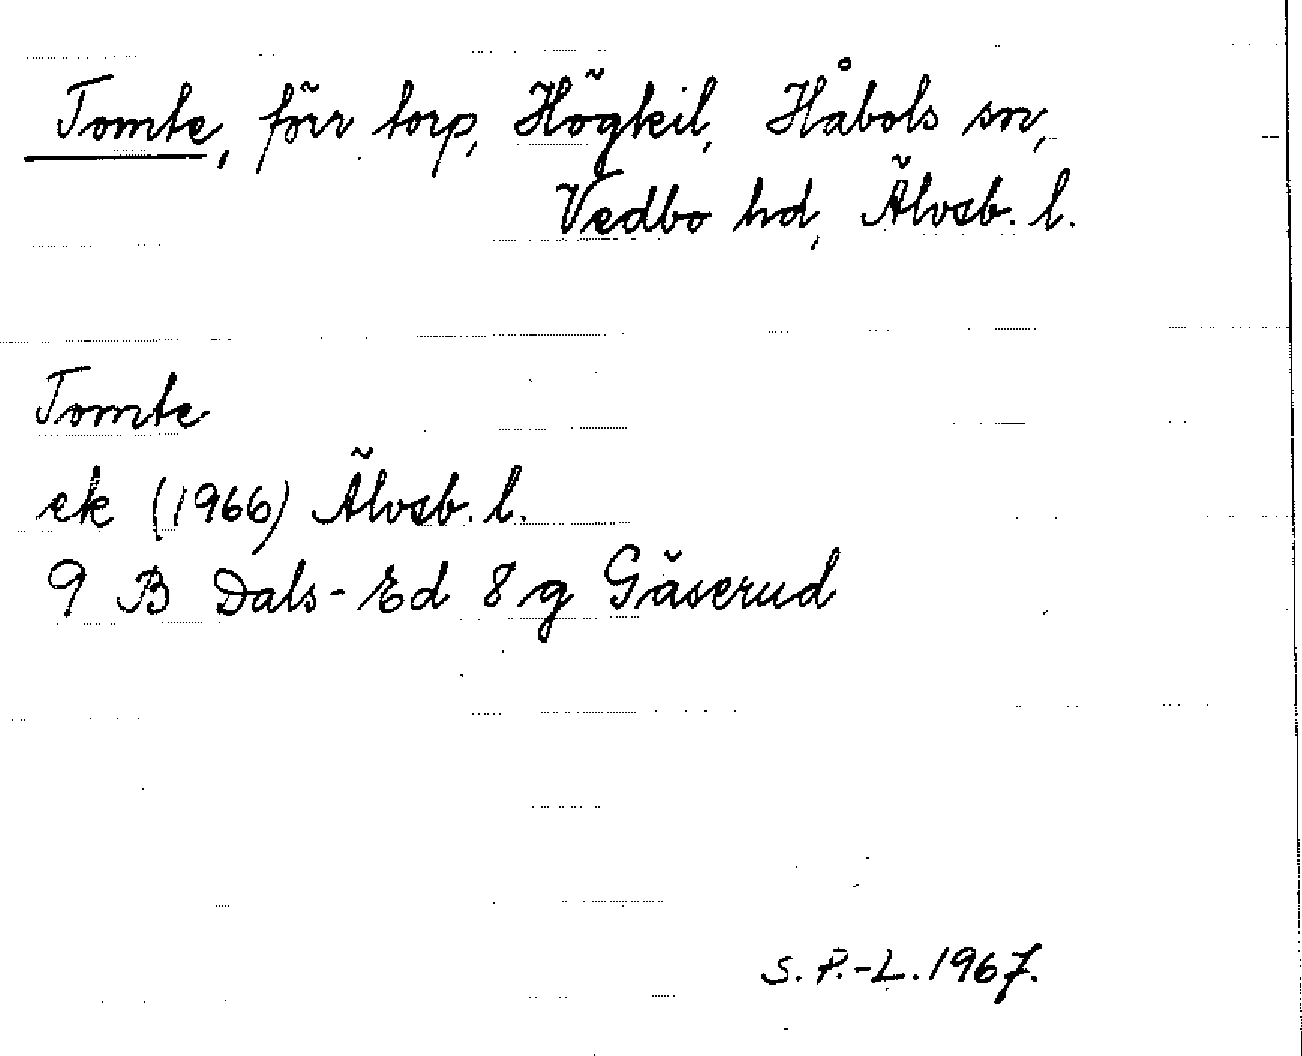 Tomte, förr torp, Högkil, Håbols sn,
Vedbo hd, Älvsb. l.
Tomte
ek (1966) Älvsb. l.
9 B Dals-Ed 8 g Gäserud
S. P.-L. 1967.